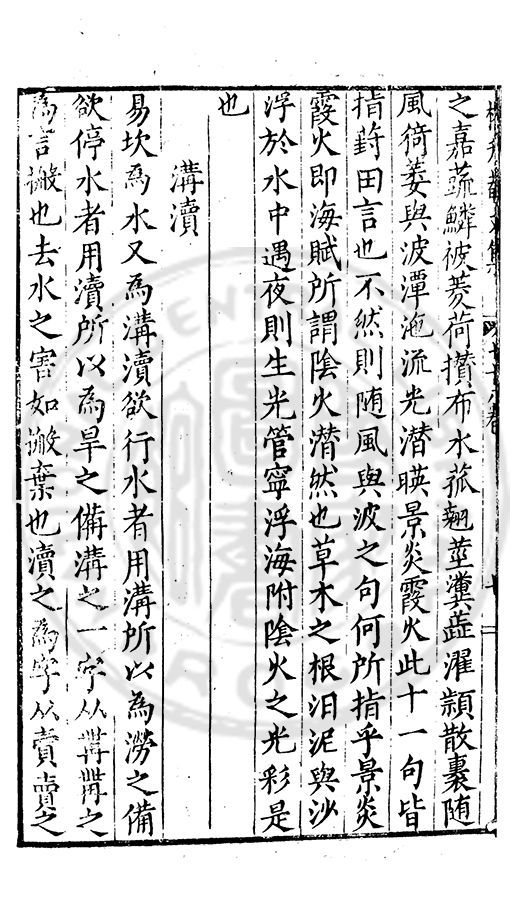 之嘉蔬鱗被菱荷攢布水蓏翹莖瀵蘂濯穎散裹随
風猗萎與波潭沲流光潜暎景炎霞火此十一句皆
指葑田言也不然則随風與波之句何所指乎景炎
霞火即海賦所謂陰火潜然也草木之根汨泥與沙
浮於水中遇夜則生光管寧浮海附陰火之光彩是
也
溝瀆
易坎為水又為溝瀆欲行水者用溝所以為澇之備
欲停水者用瀆所以為旱之備溝之一字从冓冓之
為言搬也去水之害如搬棄也瀆之為字从賣賣之